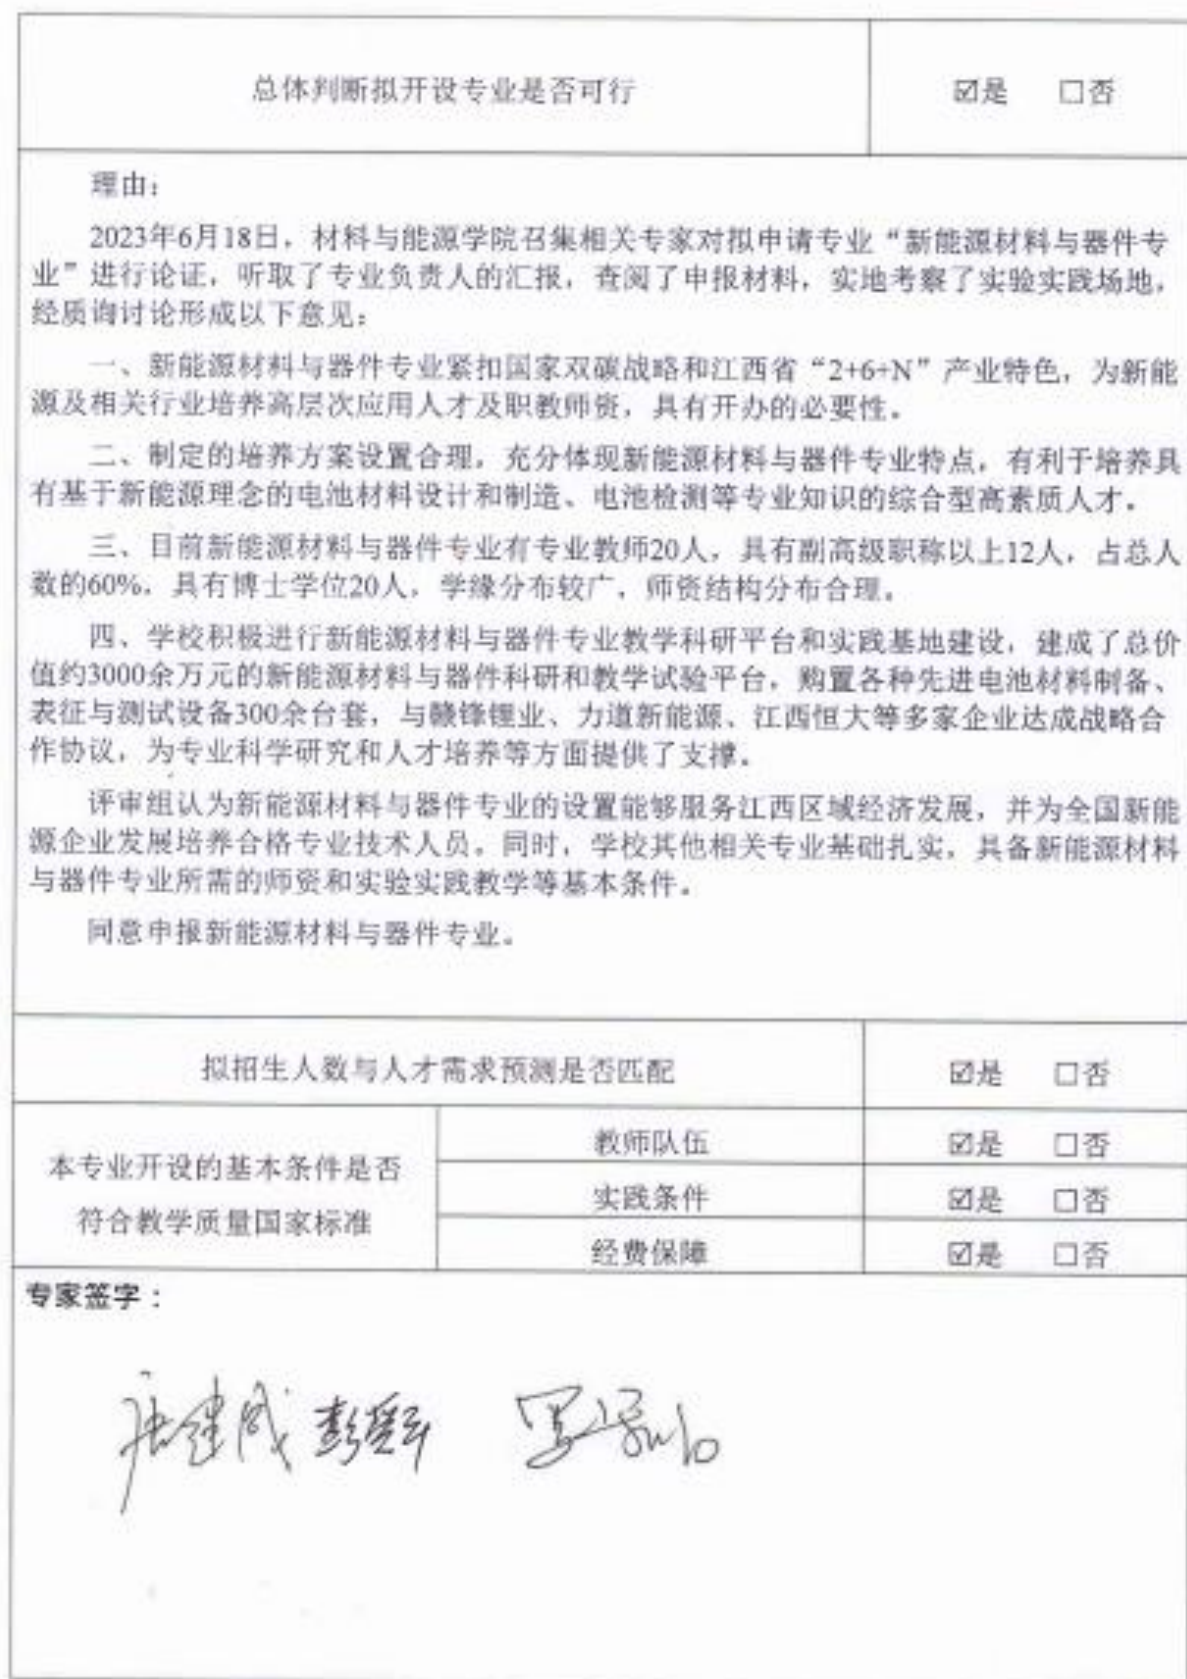 总体判断拟开设专业是否可行 ☑是 □否
理由：
2023年6月18日，材料与能源学院召集相关专家对拟申请专业“新能源材料与器件专
业”进行论证，听取了专业负责人的汇报，查阅了申报材料，实地考察了实验实践场地，
经质询讨论形成以下意见：
一、新能源材料与器件专业紧扣国家双碳战略和江西省“2+6+N”产业特色，为新能
源及相关行业培养高层次应用人才及职教师资，具有开办的必要性。
二、制定的培养方案设置合理，充分体现新能源材料与器件专业特点，有利于培养具
有基于新能源理念的电池材料设计和制造、电池检测等专业知识的综合型高素质人才。
三、目前新能源材料与器件专业有专业教师20人，具有副高级职称以上12人，占总人
数的60%，具有博士学位20人，学缘分布较广，师资结构分布合理。
四、学校积极进行新能源材料与器件专业教学科研平台和实践基地建设，建成了总价
值约3000余万元的新能源材料与器件科研和教学试验平台，购置各种先进电池材料制备、
表征与测试设备300余台套，与赣锋锂业、力道新能源、江西恒大等多家企业达成战略合
作协议，为专业科学研究和人才培养等方面提供了支撑。
评审组认为新能源材料与器件专业的设置能够服务江西区域经济发展，并为全国新能
源企业发展培养合格专业技术人员。同时，学校其他相关专业基础扎实，具备新能源材料
与器件专业所需的师资和实验实践教学等基本条件。
同意申报新能源材料与器件专业。
拟招生人数与人才需求预测是否匹配 ☑是 □否
本专业开设的基本条件是否
符合教学质量国家标准
教师队伍 ☑是 □否
实践条件 ☑是 □否
经费保障 ☑是 □否
专家签字：